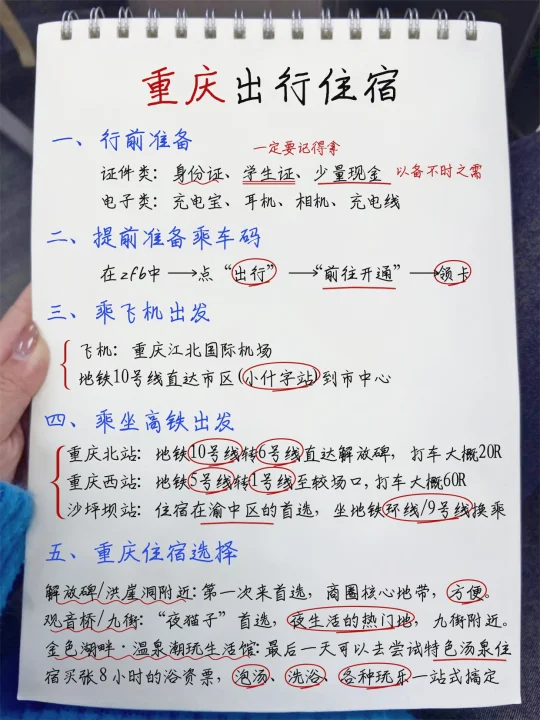 重庆出行住宿
一、行前准备
一定要记得拿
证件类：身份证、学生证、少量现金 以备不时之需
电子类：充电宝、耳机、相机、充电线
二、提前准备乘车码
在zfb中→点“出行”→“前往开通”→领卡
三、乘飞机出发
飞机：重庆江北国际机场
地铁10号线直达市区(小什字站)到市中心
四、乘坐高铁出发
重庆北站：地铁10号线转6号线直达解放碑，打车大概20R
重庆西站：地铁5号线转1号线至较场口，打车大概60R
沙坪坝站：住宿在渝中区的首选，坐地铁环线/9号线换乘
五、重庆住宿选择
解放碑/洪崖洞附近：第一次来首选，商圈核心地带，方便。
观音桥/九街：“夜猫子”首选，夜生活的热门地，九街附近。
金色湖畔·温泉潮玩生活馆：最后一天可以去尝试特色汤泉住
宿买张8小时的浴资票，泡汤、洗浴、各种玩乐一站式搞定